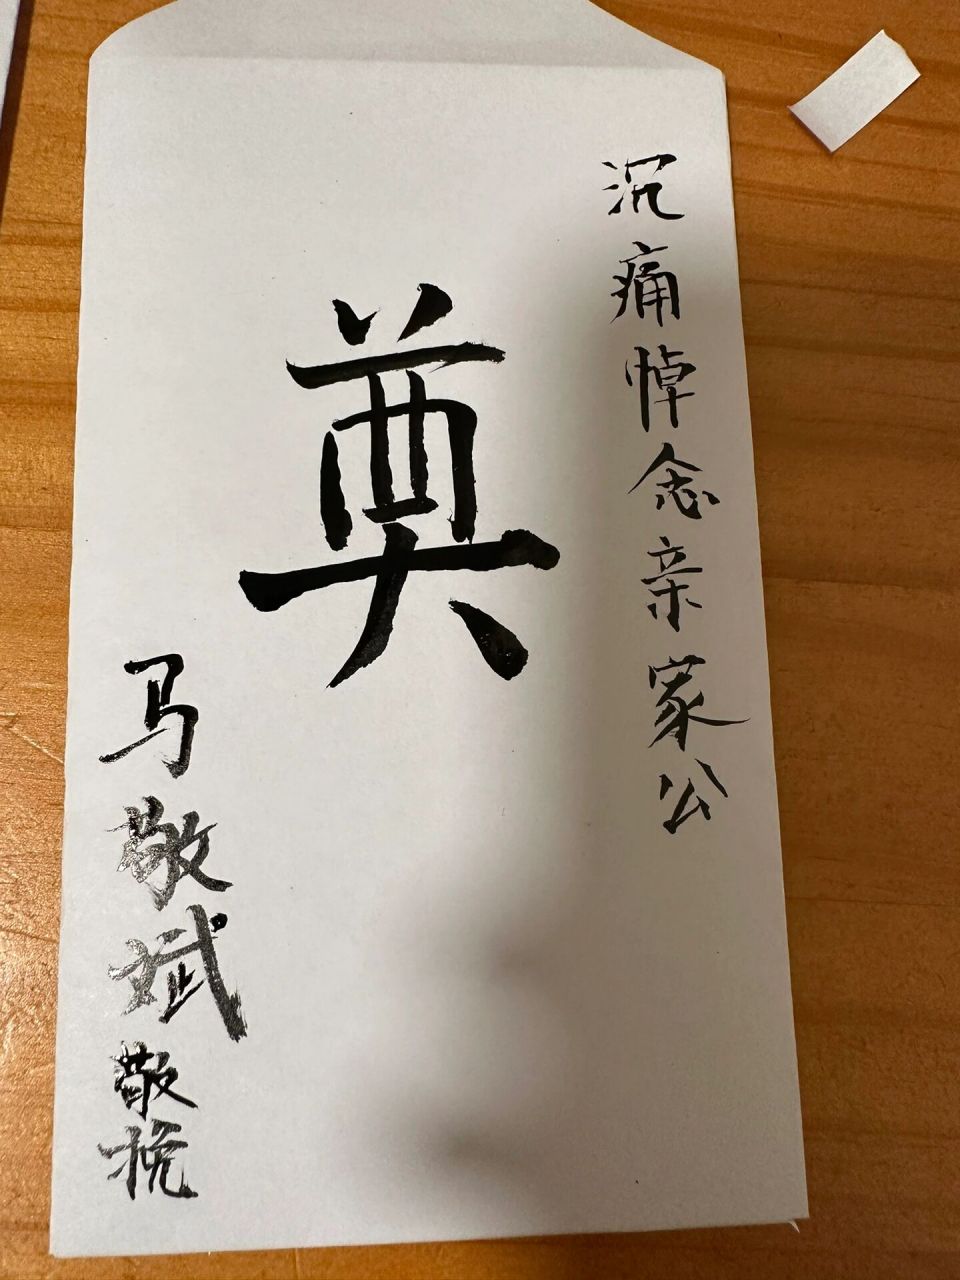 沉痛悼念亲家公
奠
马敬斌敬挽